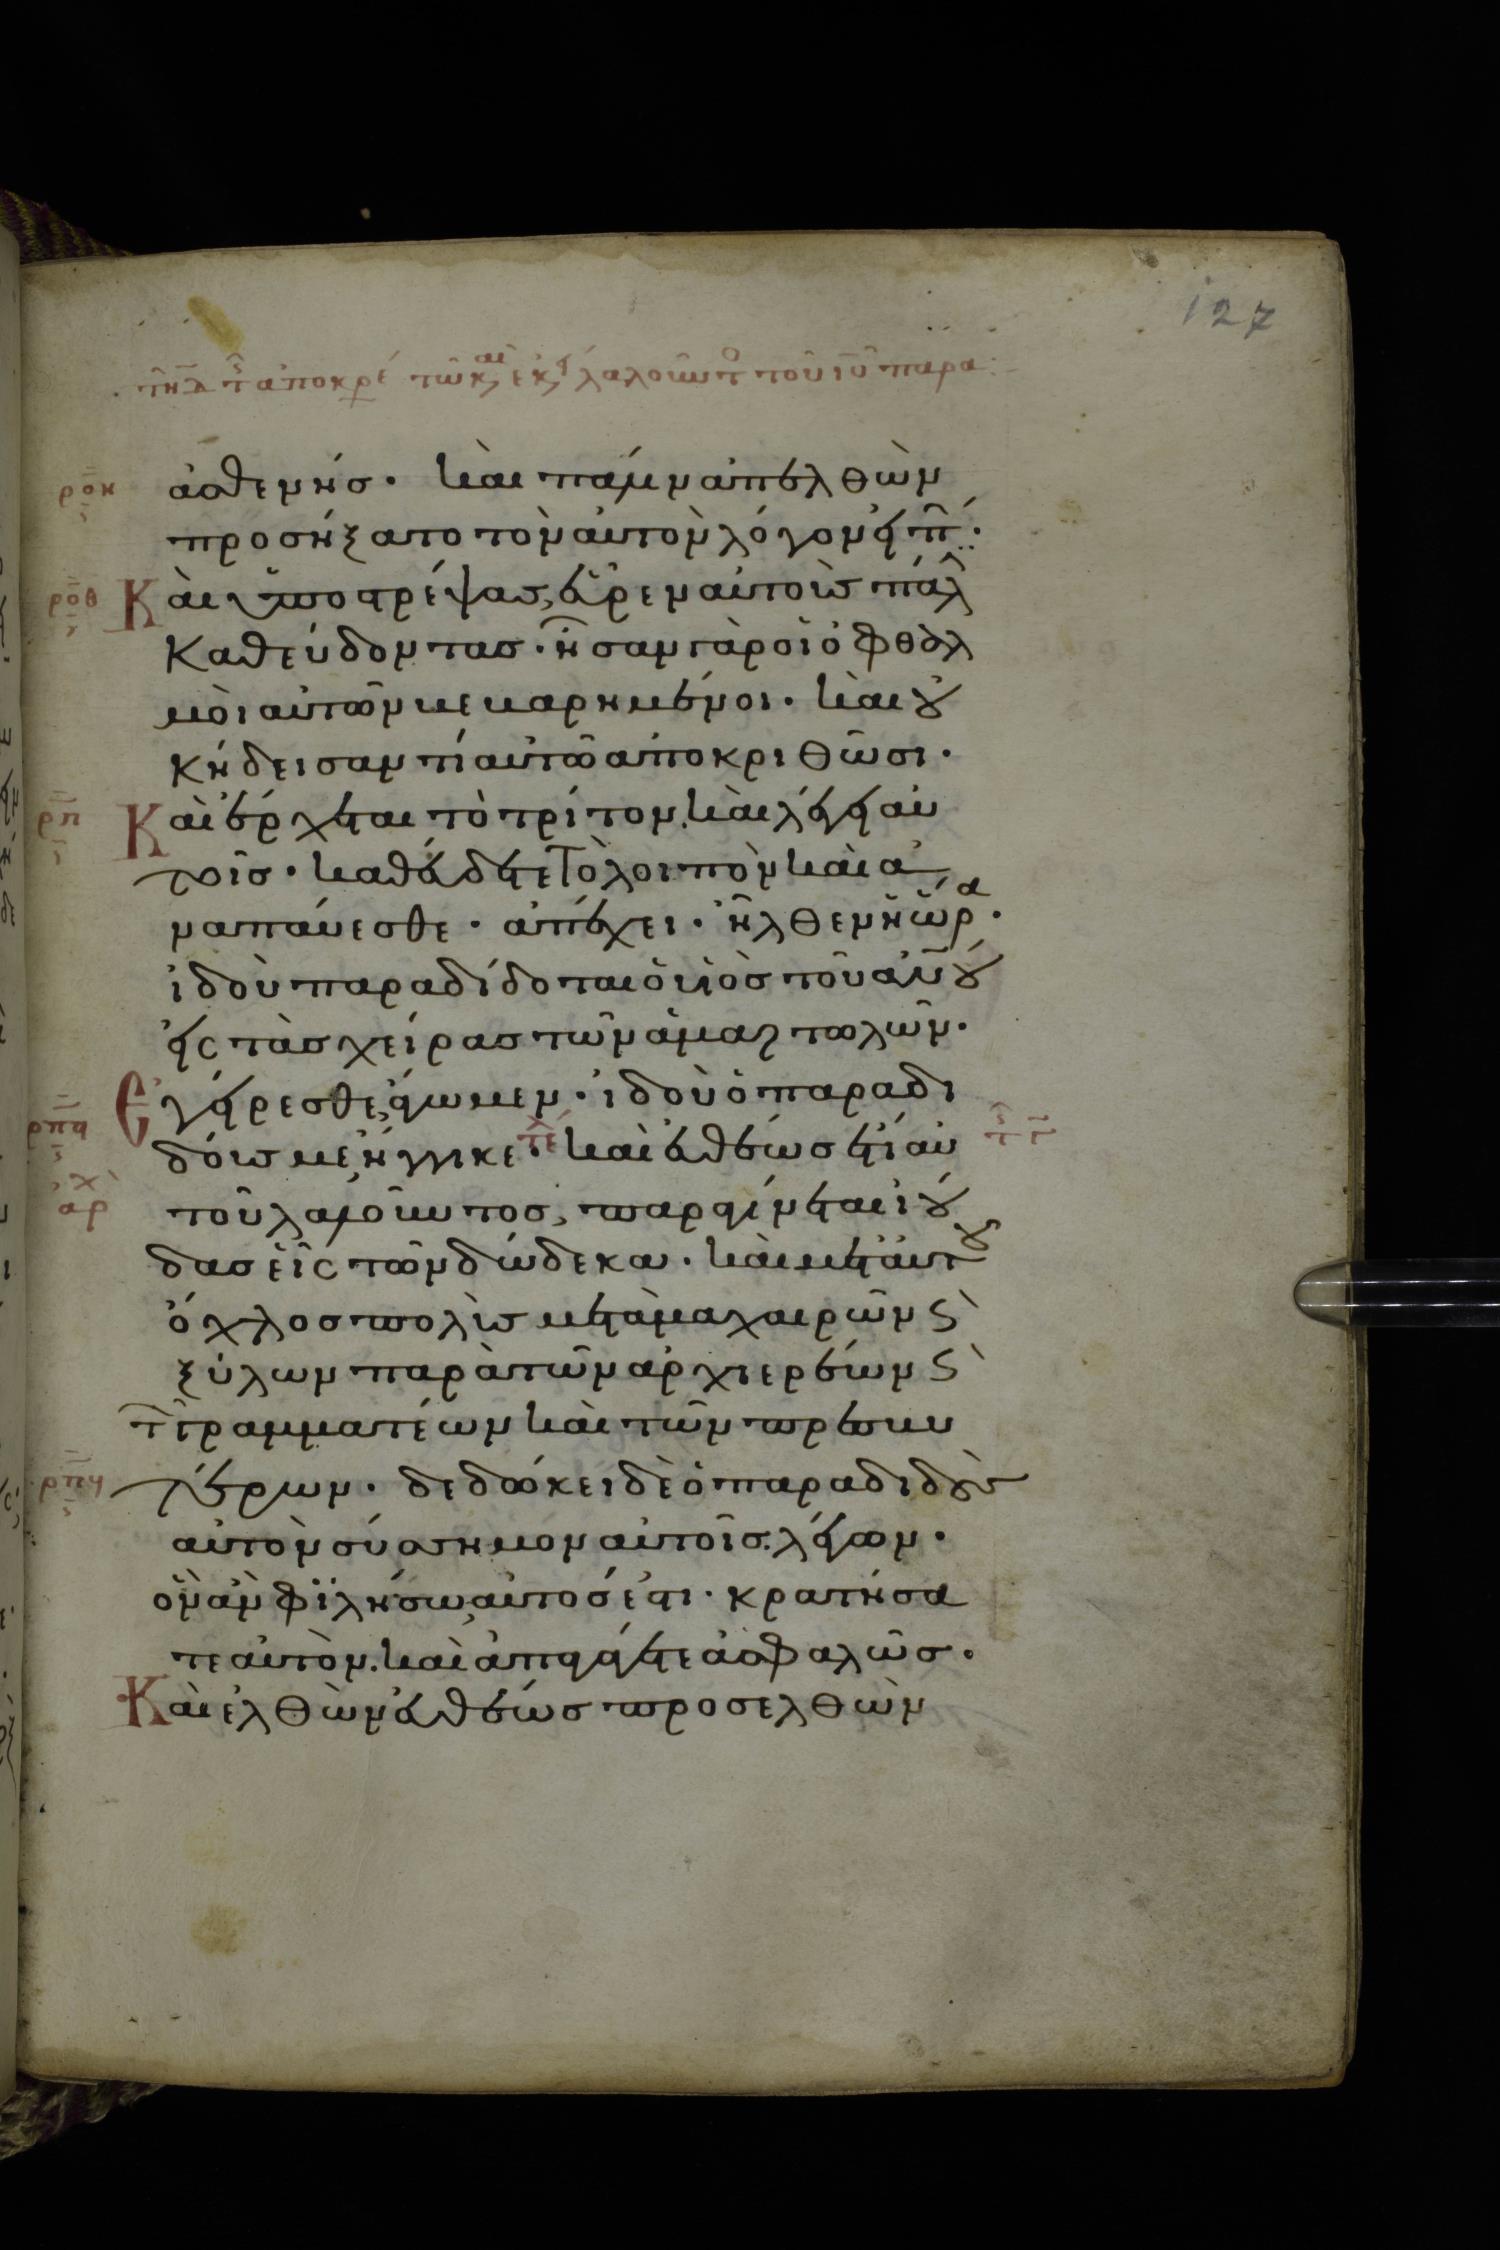 127
τῆ Δ τῆς ἀποκρέ τῶ κ, ἐκ, λαλοῦντ τοῦ ιυ παρα
ροη ἀσθενής· καὶ πάλιν ἀπελθὼν
προσήξατο τὸν αὐτὸν λόγον εἰπ·
ροθ Καὶ ὑποστρέψας, εὗρεν αὐτοὺς πάλ
καθεύδοντας· ἦσαν γὰρ οἱ ὀφθαλ
μοὶ αὐτῶν κεκαρημένοι· καὶ οὐ
κ ήδεισαν τί αὐτῶ ἀποκριθῶσι·
ρπ Καὶ ἔρχεται τὸ τρίτον, καὶ λέγει αὐ
τοῖς· καθεύδετε τὸ λοιπὸν καὶ ἀ
ναπαύεσθε· ἀπέχει· ἦλθεν ἡ ὥρα·
ἰδοὺ παραδίδοται ὁ υἱὸς τοῦ ανου
εἰς τὰς χεῖρας τῶν ἁμαρτωλῶν·
Ἐγείρεσθε, ἄγωμεν· ἰδοὺ ὁ παραδι
ρπα δούς με ἤγγικε· τε καὶ εὐθέως ἔτι αὐ
αρχ τοῦ λαλοῦντος, παραγίνεται ἰού
δας εἷς τῶν δώδεκα· καὶ μετ' αὐτοῦ
ὄχλος πολὺς μετὰ μαχαιρῶν ϗ
ξύλων παρὰ τῶν ἀρχιερέων ϗ
τῶν γραμματέων καὶ τῶν πρεσβυ
ρπβ τέρων· δεδώκει δὲ ὁ παραδιδοὺς
αὐτὸν σύσσημον αὐτοῖς, λέγων·
ὃν ἂν φιλήσω, αὐτός ἐστι· κρατήσα
τε αὐτὸν, καὶ ἀπαγάγετε ἀσφαλῶς·
Καὶ ἐλθὼν εὐθέως προσελθὼν